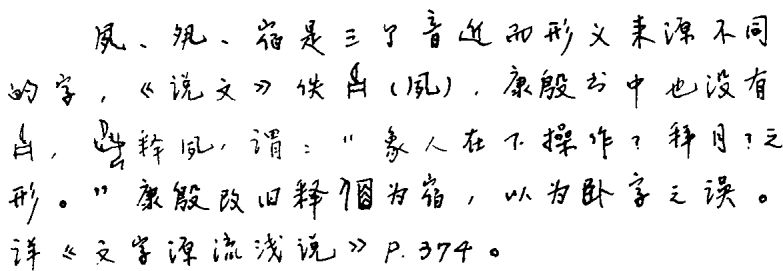 夙、𡖊、宿是三个音近而形义来源不同
的字,《说文》佚(夙),康殷书中也没有
,释夙,谓:"象人在下操作?释月?之
形。"康殷改旧释㑉为宿,以为卧字之误。
详《文字源流浅说》P.374。